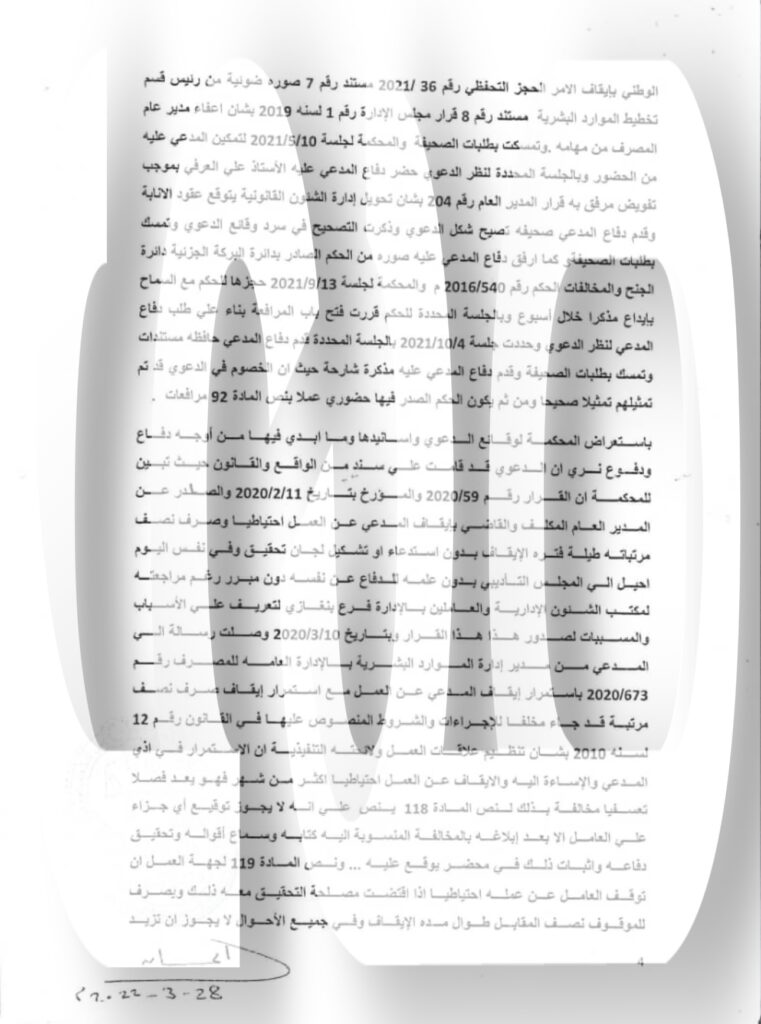 الوطني بإيقاف الامر الحجز التحفظي رقم 36 /2021 مستند رقم 7 صوره ضوئية من رئيس قسم
تخطيط الموارد البشرية مستند رقم 8 قرار مجلس الإدارة رقم 1 لسنه 2019 بشان اعفاء مدير عام
المصرف من مهامه .وتمسكت بطلبات الصحيفة والمحكمة لجلسة 2021/5/10 لتمكين المدعي عليه
من الحضور وبالجلسة المحددة لنظر الدعوي حضر دفاع المدعي عليه الأستاذ علي العرفي بموجب
تفويض مرفق به قرار المدير العام رقم 204 بشان تحويل إدارة الشئون القانونية يتوقع عقود الانابة
وقدم دفاع المدعي صحيفه تصيح شكل الدعوي وذكرت التصحيح في سرد وقائع الدعوي وتمسك
بطلبات الصحيفةو كما ارفق دفاع المدعي عليه صوره من الحكم الصادر بدائرة البركة الجزئية دائرة
الجنح والمخالفات الحكم رقم 2016/540 م والمحكمة لجلسة 2021/9/13 حجزها للحكم مع السماح
بإيداع مذكرا خلال أسبوع وبالجلسة المحددة للحكم قررت فتح باب المرافعة بناء علي طلب دفاع
المدعي لنظر الدعوي وحددت جلسة 2021/10/4 بالجلسة المحددة قدم دفاع المدعي حافظه مستندات
وتمسك بطلبات الصحيفة وقدم دفاع المدعي عليه مذكرة شارحة حيث ان الخصوم في الدعوي قد تم
تمثيلهم تمثيلا صحيحا ومن ثم يكون الحكم الصدر فيها حضوري عملا بنص المادة 92 مرافعات .
باستعراض المحكمة لوقائع الدعوي واسانيدها وما ابدي فيها من أوجه دفاع
ودفوع نري ان الدعوي قد قامت علي سند من الواقع والقانون حيث تبين
للمحكمة ان القرار رقم 2020/59 والمؤرخ بتاريخ 2020/2/11 والصادر عن
المدير العام المكلف والقاضي بإيقاف المدعي عن العمل احتياطيا وصرف نصف
مرتباته طيلة فتره الإيقاف بدون استدعاء او تشكيل لجان تحقيق وفي نفس اليوم
احيل الي المجلس التأديبي بدون علمه للدفاع عن نفسه دون مبرر رغم مراجعته
لمكتب الشئون الإدارية والعاملين بالإدارة فرع بنغازي لتعريف علي الأسباب
والمسببات لصدور هذا هذا القرار وبتاريخ 2020/3/10 وصلت رسالة الي
المدعي من مدير إدارة الموارد البشرية بالإدارة العامه للمصرف رقم
2020/673 باستمرار إيقاف المدعي عن العمل مع استمرار إيقاف صرف نصف
مرتبة قد جاء مخلفا للإجراءات والشروط المنصوص عليها في القانون رقم 12
لسنه 2010 بشان تنظيم علاقات العمل ولائحته التنفيذية ان الاستمرار في اذي
المدعي والإساءة اليه والايقاف عن العمل احتياطيا اكثر من شهر فهو يعد فصلا
تعسفيا مخالفة بذلك لنص المادة 118 ينص علي انه لا يجوز توقيع أي جزاء
علي العامل الا بعد إبلاغه بالمخالفة المنسوبة اليه كتابه وسماع أقواله وتحقيق
دفاعه واثبات ذلك في محضر يوقع عليه ... ونص المادة 119 لجهة العمل ان
توقف العامل عن عمله احتياطيا اذا اقتضت مصلحة التحقيق معه ذلك ويصرف
للموقوف نصف المقابل طوال مده الإيقاف وفي جميع الأحوال لا يجوز ان تزيد
4
2022-3-28